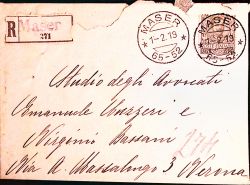 R Maser
271
MASER
1-2.19
65-52
MASER
2.19
65-52
Studio degli Avvocati
Emanuele e
Virginio Bassani
Via A. Massalongo 3 Verona
274